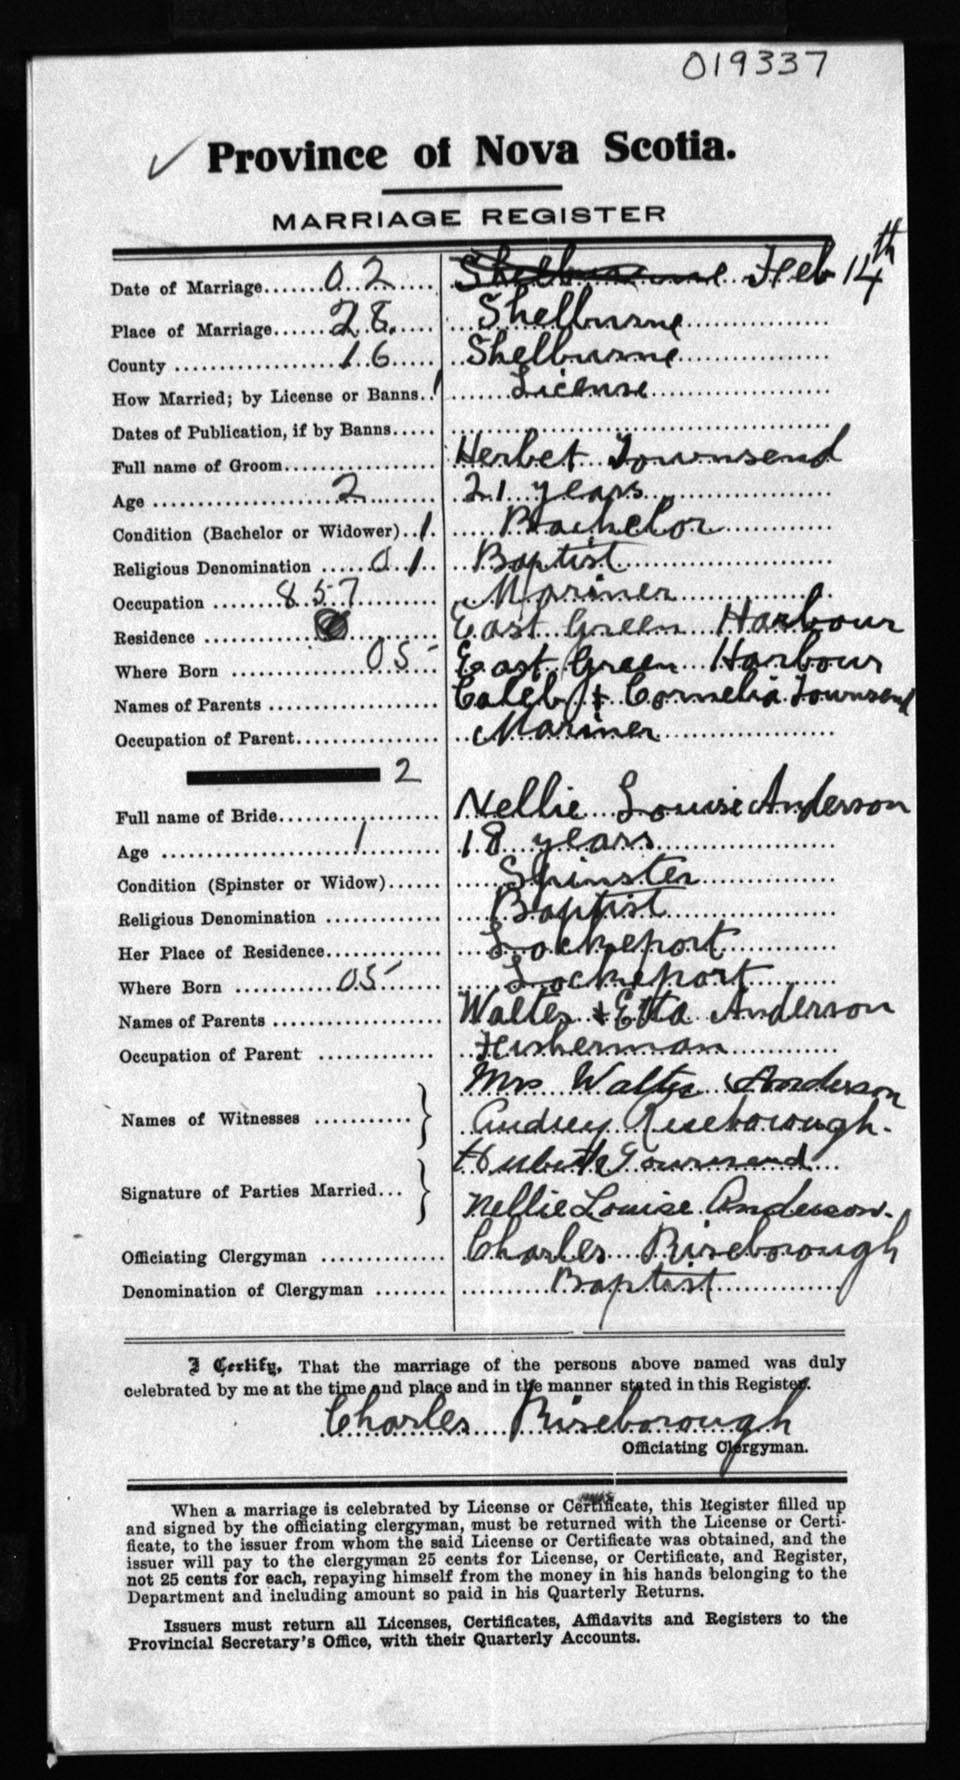 019337
✓ Province of Nova Scotia.
MARRIAGE REGISTER
Date of Marriage.......02..... Shelburne Feb 14th
Place of Marriage......28...... Shelburne
County ..................16...... Shelburne
How Married; by License or Banns..1 License
Dates of Publication, if by Banns.....
Full name of Groom................. Herbet Townsend
Age ..................2......... 21 years
Condition (Bachelor or Widower)..1. Bachelor
Religious Denomination ......01.. Baptist
Occupation ........857......... Mariner
Residence ........................ East Green Harbour
Where Born ...............05 East Green Harbour
Names of Parents .................. Caleb & Cornelia Townsend
Occupation of Parent................. Mariner
2
Full name of Bride.................. Nellie Louise Anderson
Age ....................1......... 18 years
Condition (Spinster or Widow)...... Spinster
Religious Denomination ............. Baptist
Her Place of Residence............. Lockeport
Where Born ..........05...... Lockeport
Names of Parents ................... Walter & Etta Anderson
Occupation of Parent ............. Fisherman
Mrs Walter Anderson
Names of Witnesses ........... } Audrey Riseborough.
Townsend
Signature of Parties Married... } Nellie Louise Anderson.
Officiating Clergyman ............. Charles Riseborough
Denomination of Clergyman ........ Baptist
I Certify, That the marriage of the persons above named was duly
celebrated by me at the time and place and in the manner stated in this Register.
Charles Riseborough
Officiating Clergyman.
When a marriage is celebrated by License or Certificate, this Register filled up
and signed by the officiating clergyman, must be returned with the License or Certi-
ficate, to the issuer from whom the said License or Certificate was obtained, and the
issuer will pay to the clergyman 25 cents for License, or Certificate, and Register,
not 25 cents for each, repaying himself from the money in his hands belonging to the
Department and including amount so paid in his Quarterly Returns.
Issuers must return all Licenses, Certificates, Affidavits and Registers to the
Provincial Secretary's Office, with their Quarterly Accounts.